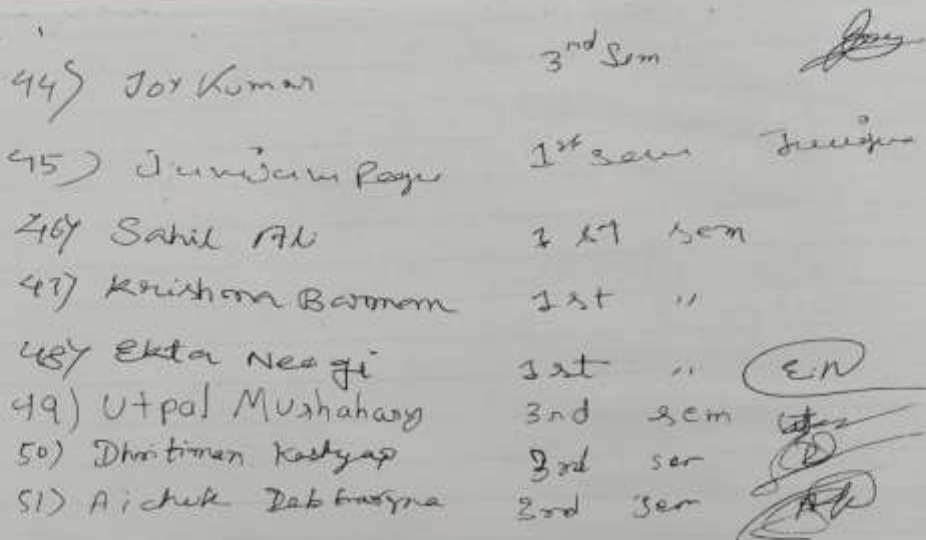 44) Joy Kumar 3nd Sem
45) Junijum Pegu 1st sem
46) Sahil Ali 1st sem
47) Krishna Barman 1st "
48) Ekta Neogi 1st " E.N
49) Utpal Mushahary 3nd sem
50) Dhritiman Kashyap 3rd sem
51) Aichuk Debbarma 3rd sem